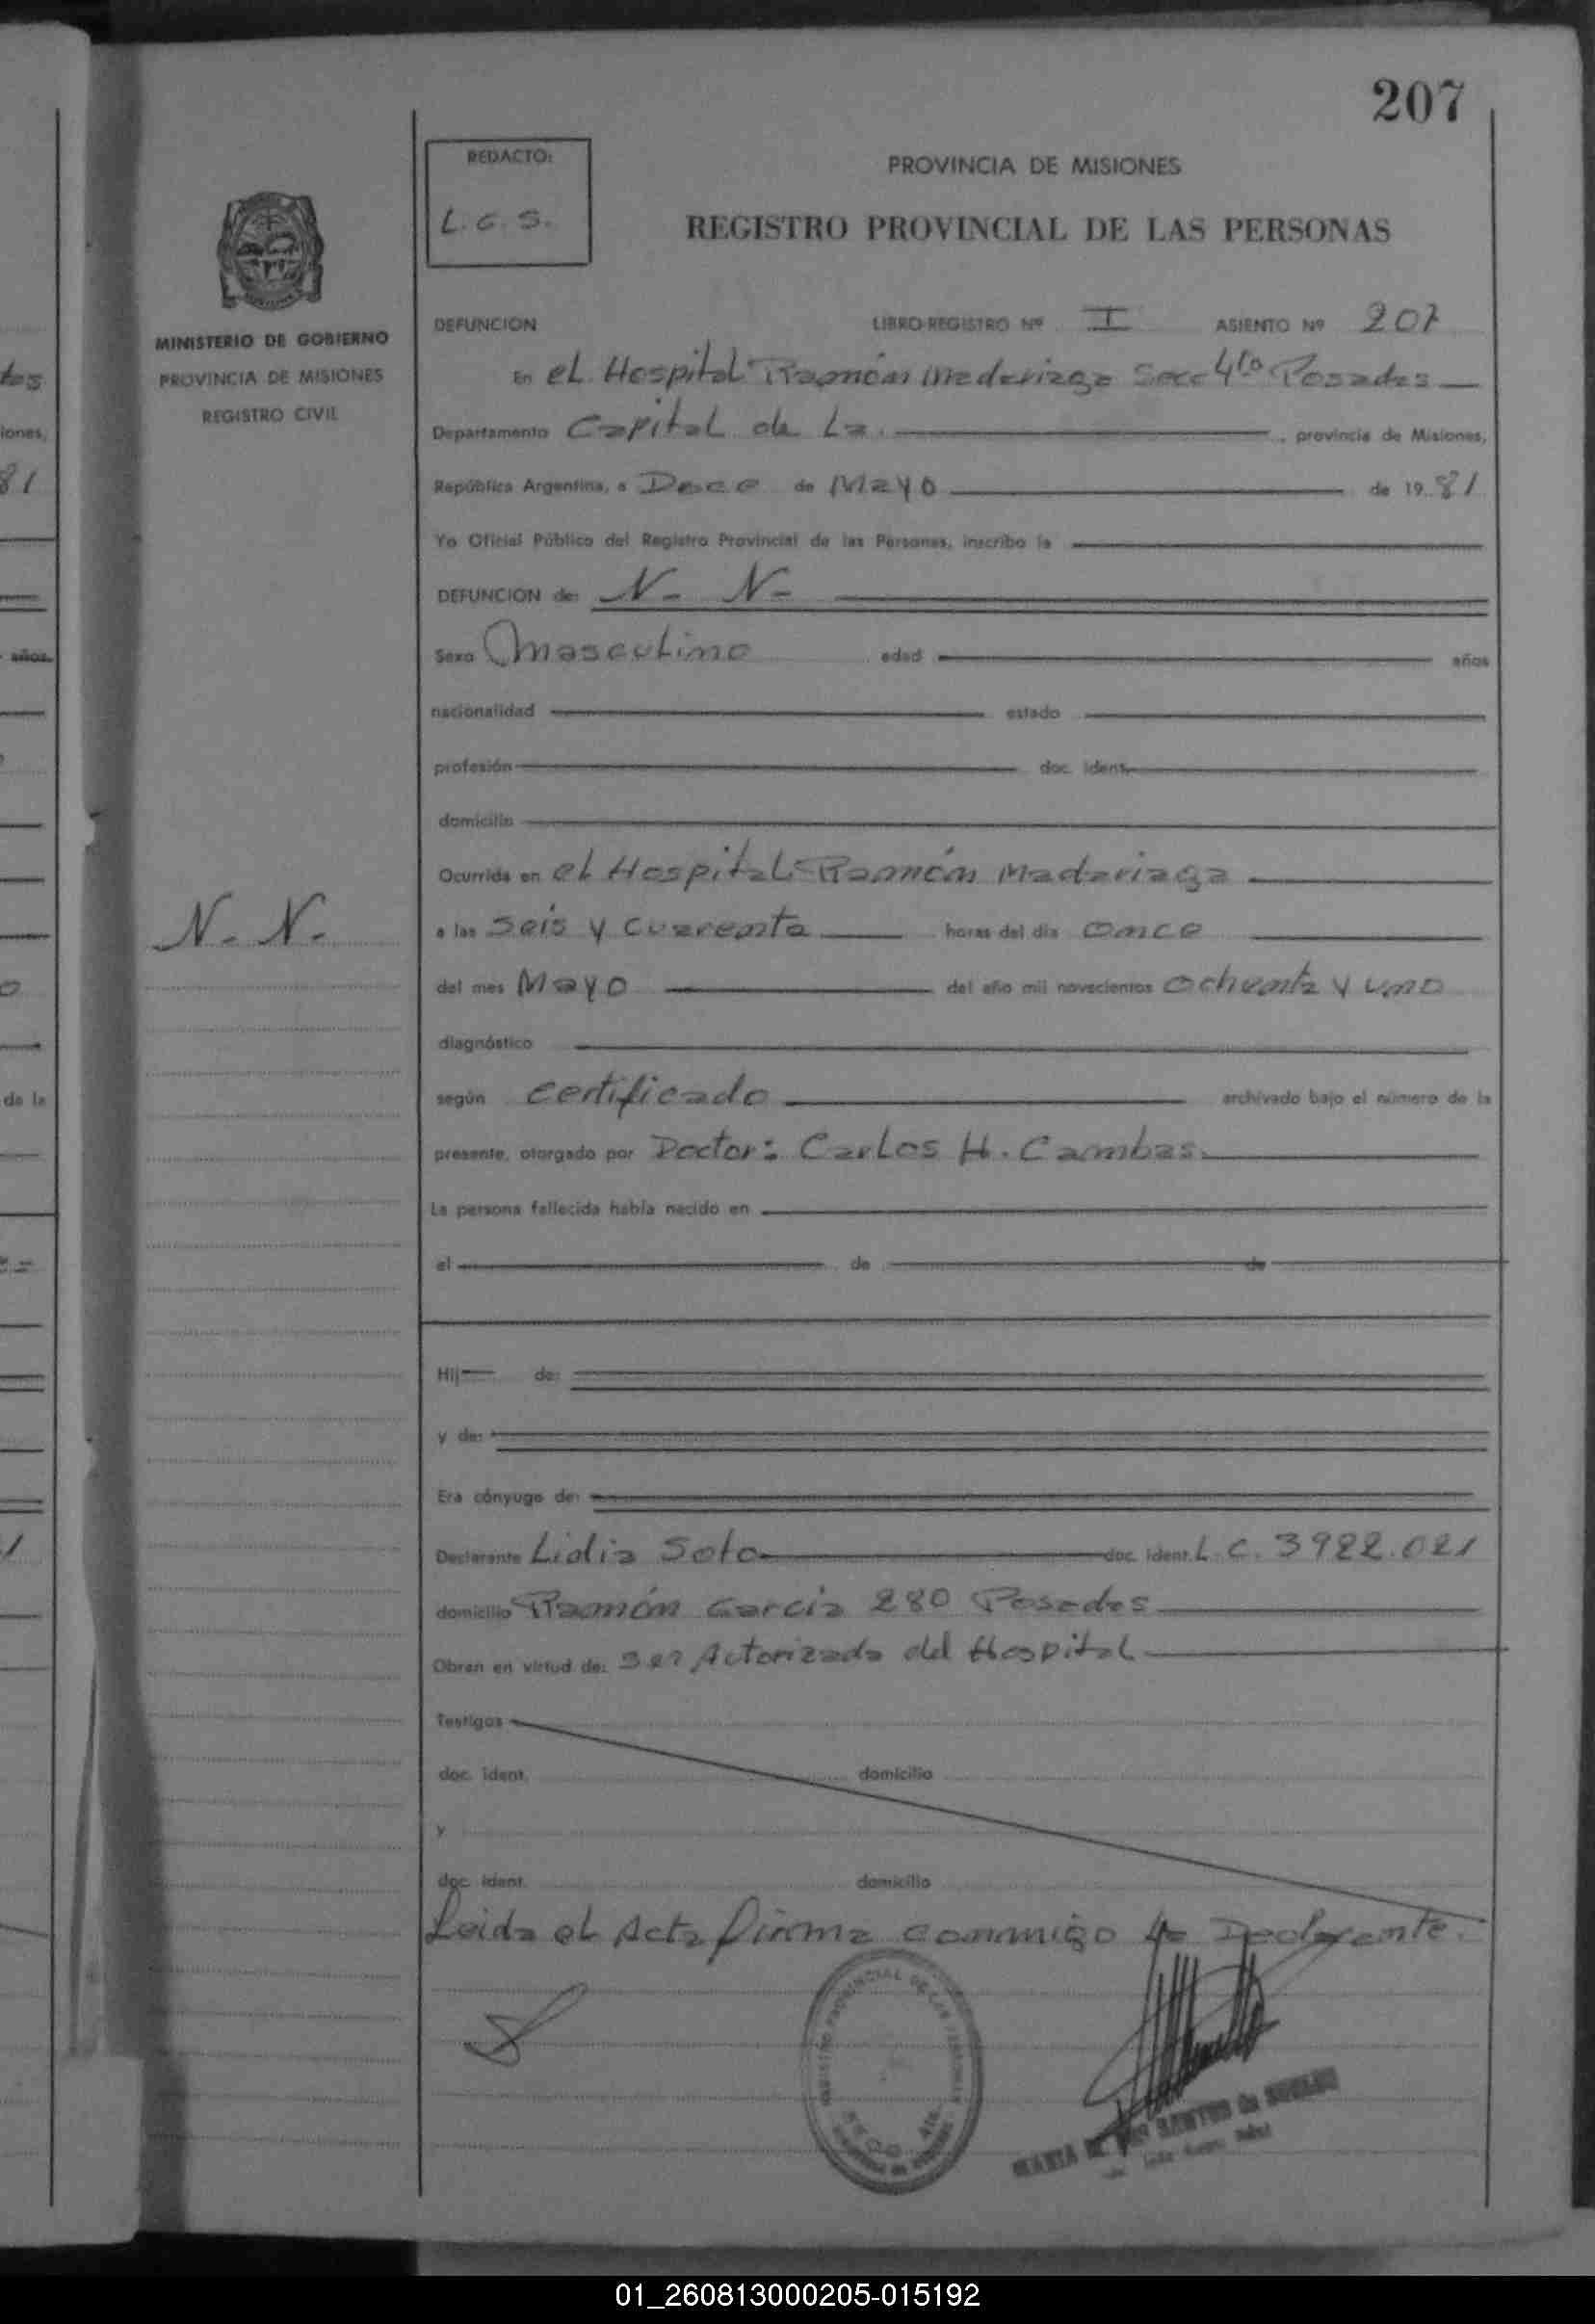 207
REDACTO:
L.C.S.
PROVINCIA DE MISIONES
REGISTRO PROVINCIAL DE LAS PERSONAS
MINISTERIO DE GOBIERNO
PROVINCIA DE MISIONES
REGISTRO CIVIL
DEFUNCION LIBRO-REGISTRO Nº I ASIENTO Nº 207
En el Hospital Ramón Madariaga Secc 4ta Posadas
Departamento Capital de La. , provincia de Misiones,
República Argentina, a Doce de Mayo de 1981
Yo Oficial Público del Registro Provincial de las Personas, inscribo la
DEFUNCION de: N- N-
Sexo Masculino edad años
nacionalidad estado
profesión doc. ident.
domicilio
Ocurrida en el Hospital Ramón Madariaga
N. N.
a las seis y cuarenta horas del día once
del mes Mayo del año mil novecientos ochenta y uno
diagnóstico
según certificado archivado bajo el número de la
presente, otorgado por Doctor: Carlos H. Cambas.
La persona fallecida había nacido en
el de de
Hij de:
y de:
Era cónyuge de:
Declarante Lidia Soto doc. ident. L.C. 3922.021
domicilio Ramón Garcia 280 Posadas
Obran en virtud de: ser Actorizada del Hospital
Testigos
doc. ident. domicilio
y
doc. ident. domicilio
Leida el Acta firma conmigo la Declarante.
MARIA SANTOS de
tos
iones,
81
años.
de la
01_260813000205-015192